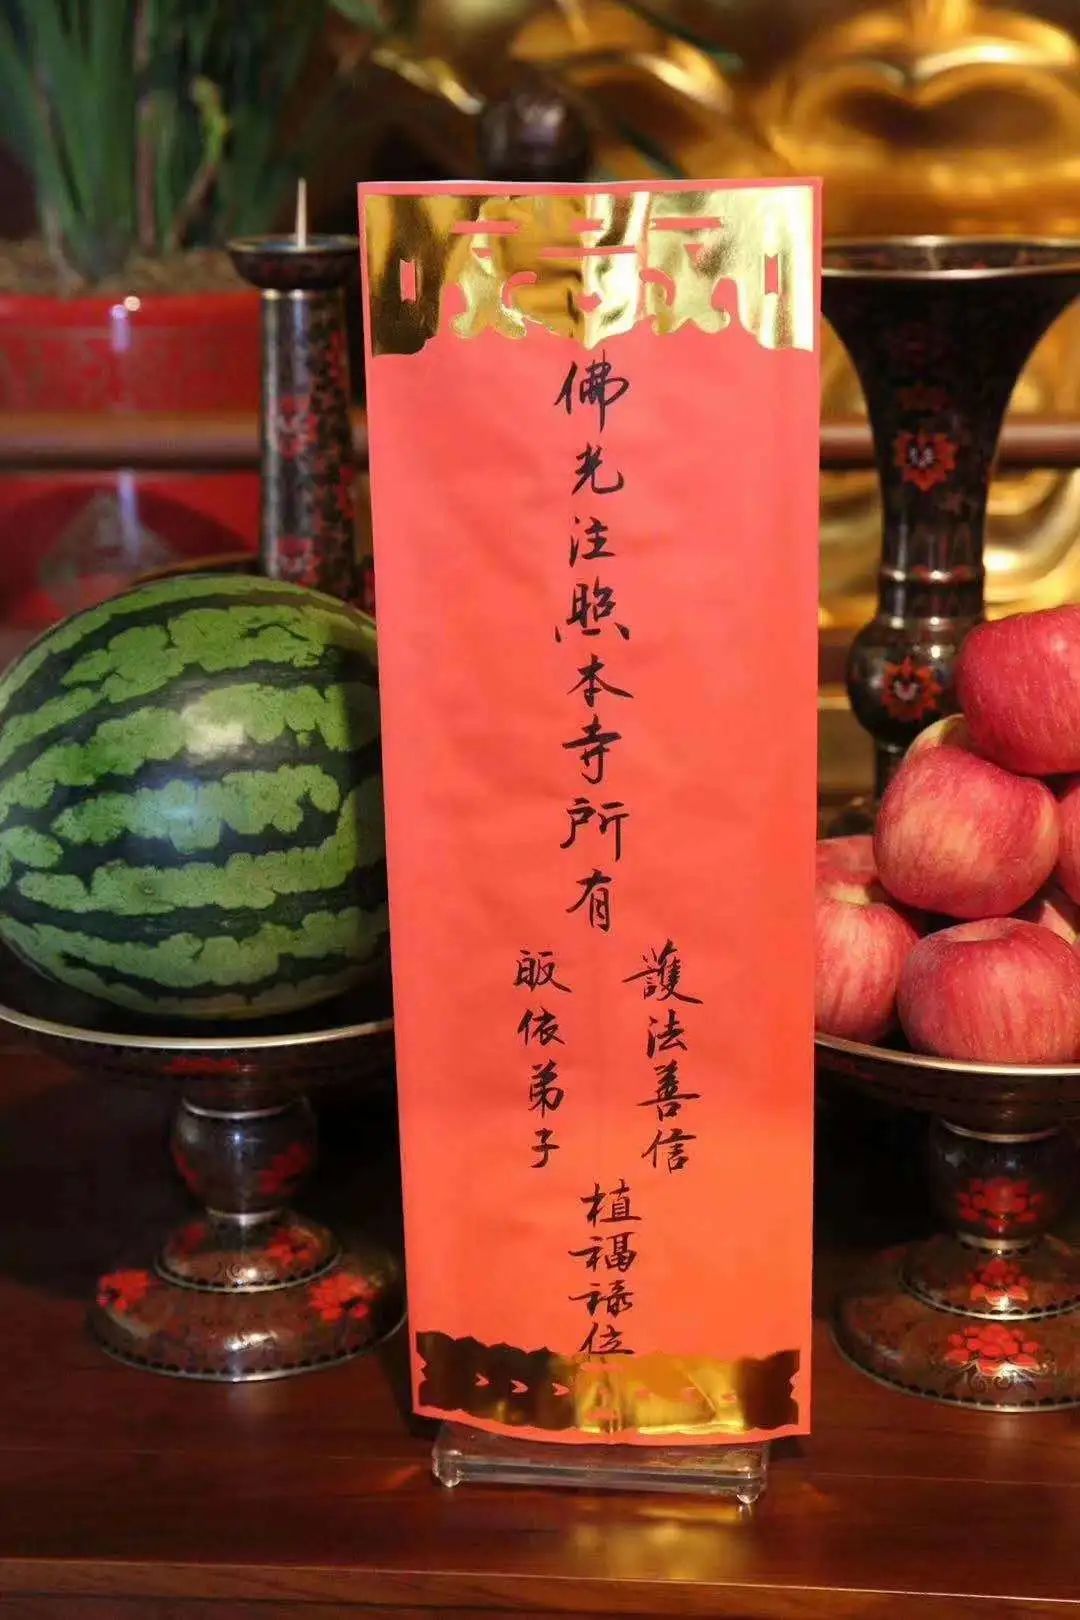 佛光注照本寺所有
護法善信
皈依弟子
植福祿位